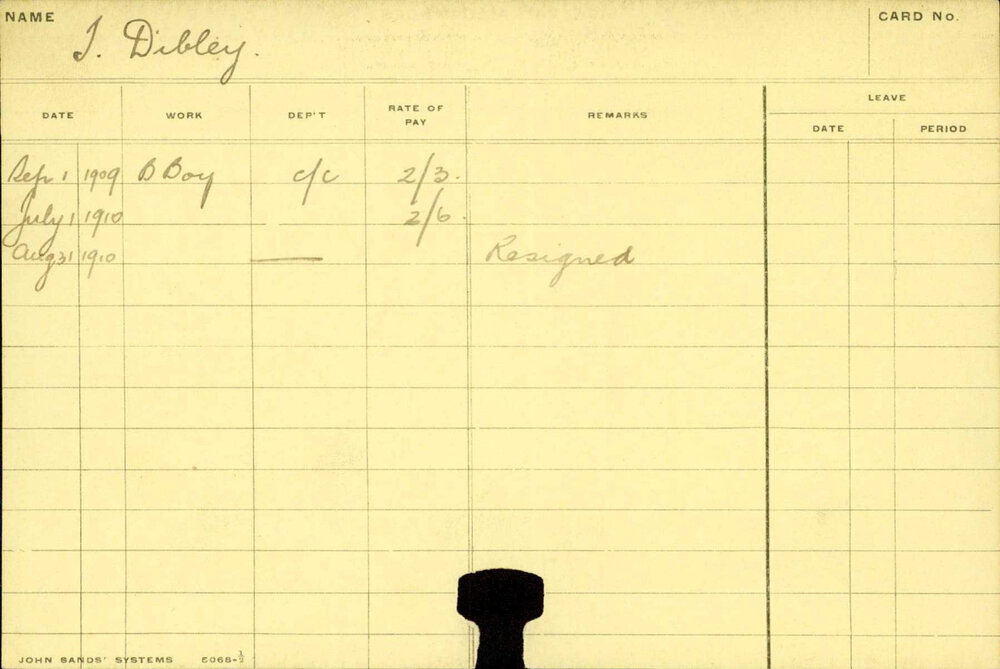 NAME J. Dibley. CARD No.
DATE WORK DEP'T RATE OF PAY REMARKS LEAVE
DATE PERIOD
Sep 1 1909 B Boy c/c 2/3.
July 1 1910 2/6.
Aug 31 1910 — Resigned
JOHN SANDS' SYSTEMS 5068-½